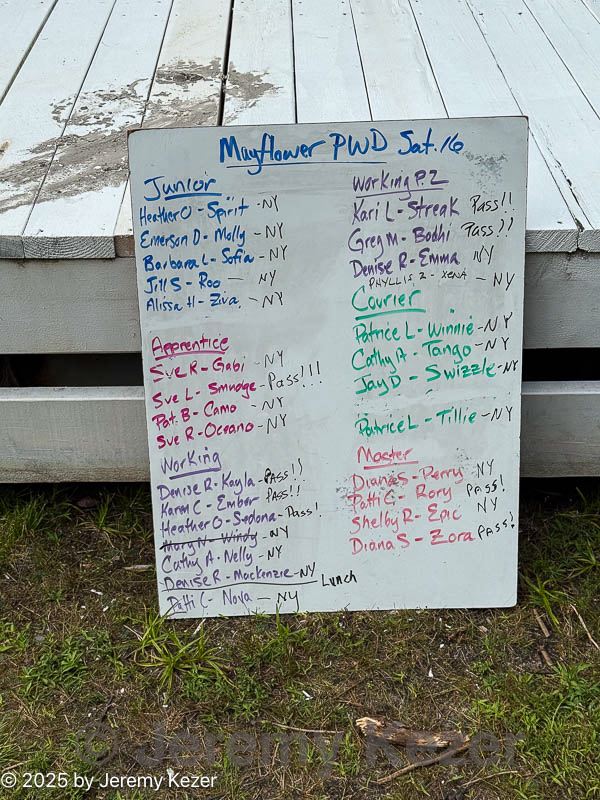 Mayflower PWD Sat. 16
Junior
Heather O - Spirit - NY
Emerson D - Molly - NY
Barbara L - Sofia - NY
Jill S - Roo - NY
Alissa H - Ziva - NY
Apprentice
Sve R - Gabi - NY
Sve L - Smudge - Pass!!!
Pat. B - Camo - NY
Sve R - Oceano - NY
Working
Denise R - Kayla - Pass!!
Karen C - Ember Pass!!
Heather O - Sedona - Pass!
Mary N - Windy - NY
Cathy A - Nelly - NY
Denise R - Mackenzie - NY Lunch
Patti C - Nova - NY
Working P. 2
Kari L - Streak Pass!!
Greg M - Bodhi Pass!!
Denise R - Emma NY
PHYLLIS Z - XENA - NY
Courier
Patrice L - Winnie - NY
Cathy A - Tango - NY
Jay D - Swizzle - NY
Patrice L - Tillie - NY
Master
Diana S - Perry NY
Patti C - Rory Pass!
Shelby R - Epic NY
Diana S - Zora Pass!
© Jeremy Kezer
© 2025 by Jeremy Kezer